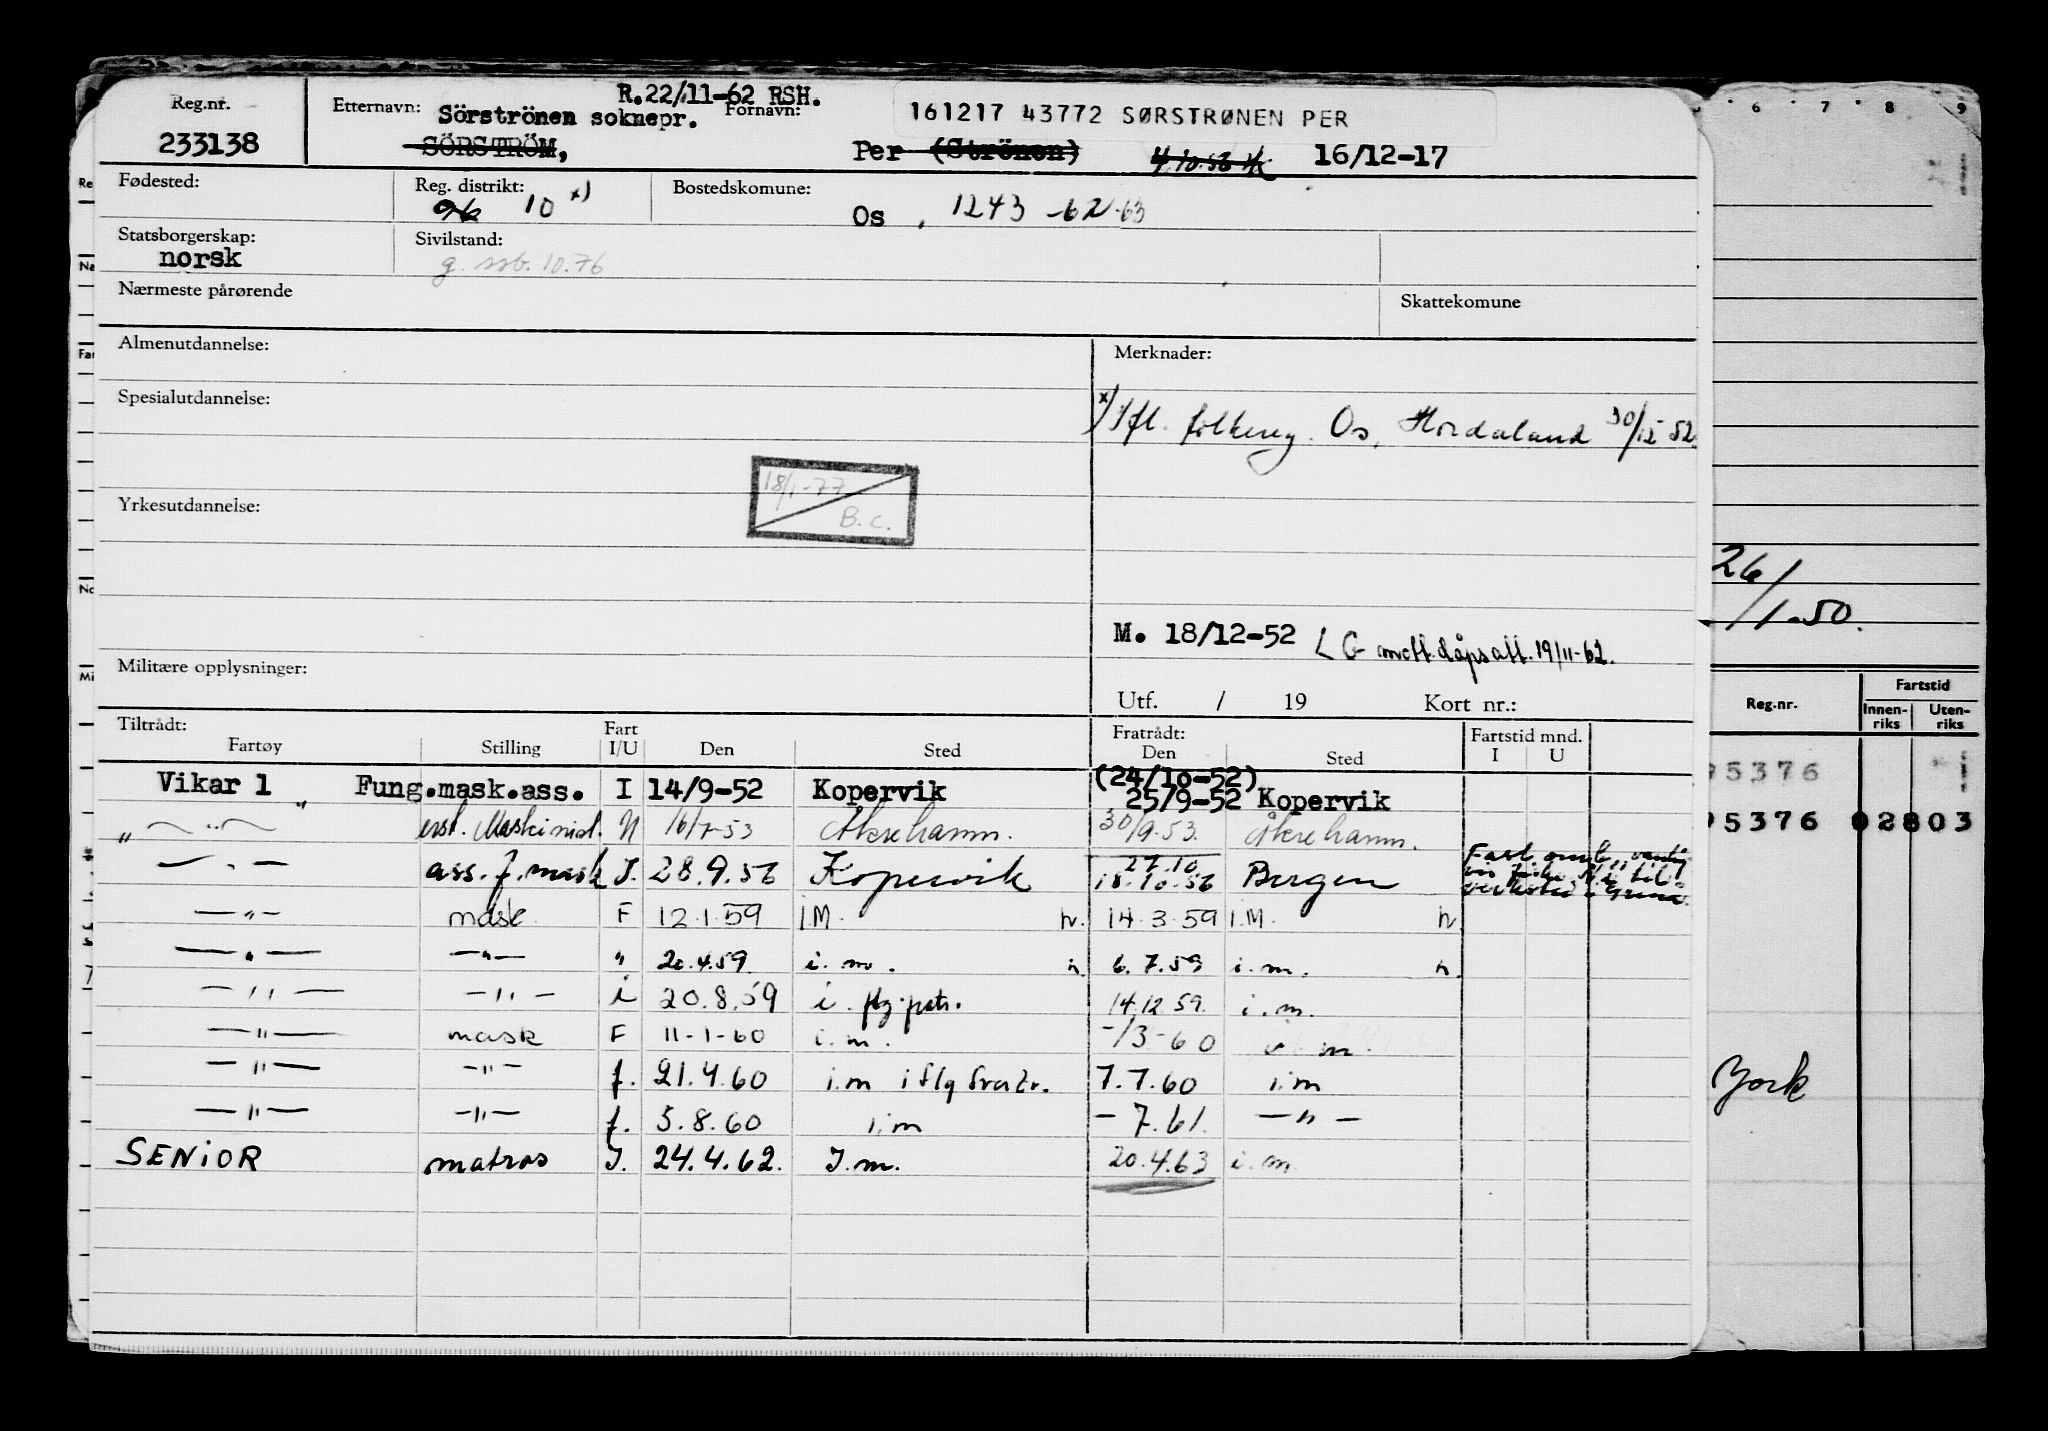 R.22/11-62 RSH.
Reg.nr. Etternavn: Sörströnen soknepr. Fornavn: 161217 43772 SØRSTRØNEN PER
233138 SÖRSTRÖM, Per (Strönen) 4.10.56 16/12-17
Fødested: Reg. distrikt: Bostedskomune:
96 10 x) Os , 1243 -62-63
Statsborgerskap: Sivilstand:
norsk g. ssb. 10.76
Nærmeste pårørende Skattekomune
Almenutdannelse: Merknader:
Spesialutdannelse:
x) Ifl. folkereg. Os, Hordaland 30/12 52.
18/1-77
B.c.
Yrkesutdannelse:
M. 18/12-52 LG mott.dåpsatt. 19/11-62.
Militære opplysninger:
Utf. / 19 Kort nr.:
Tiltrådt: Fart Fratrådt: Fartstid mnd.
Fartøy Stilling I/U Den Sted Den Sted I U
(24/10-52)
Vikar 1 Fung.mask.ass. I 14/9-52 Kopervik 25/9-52 Kopervik
" —"— Maskinist. N 16/7-53 Åkrehamn. 30/9.53. Åkrehamn.
27.10
—"— ass. f. mask I. 28.9.56 Kopervik 18.10.56 Bergen
—"— mask F 12.1.59 i.M. n. 14.3.59 i.M. n
—"— —"— " 20.4.59. i.m. n. 6.7.59 i.m. n.
—"— —"— i 20.8.59 i. 14.12.59. i.m.
—"— mask F 11-1-60 i.m. -/3-60 i m.
—"— —"— f. 21.4.60 i.m i 7.7.60 i.m
—"— —"— f. 5.8.60 i.m - 7.61. —"—
SENIOR matros I. 24.4.62. I.m. 20.4.63 i.m.
6 7 8 9
26/1-50.
Reg.nr. Fartstid
Innen-riks Uten-riks
95376
95376 02803
York